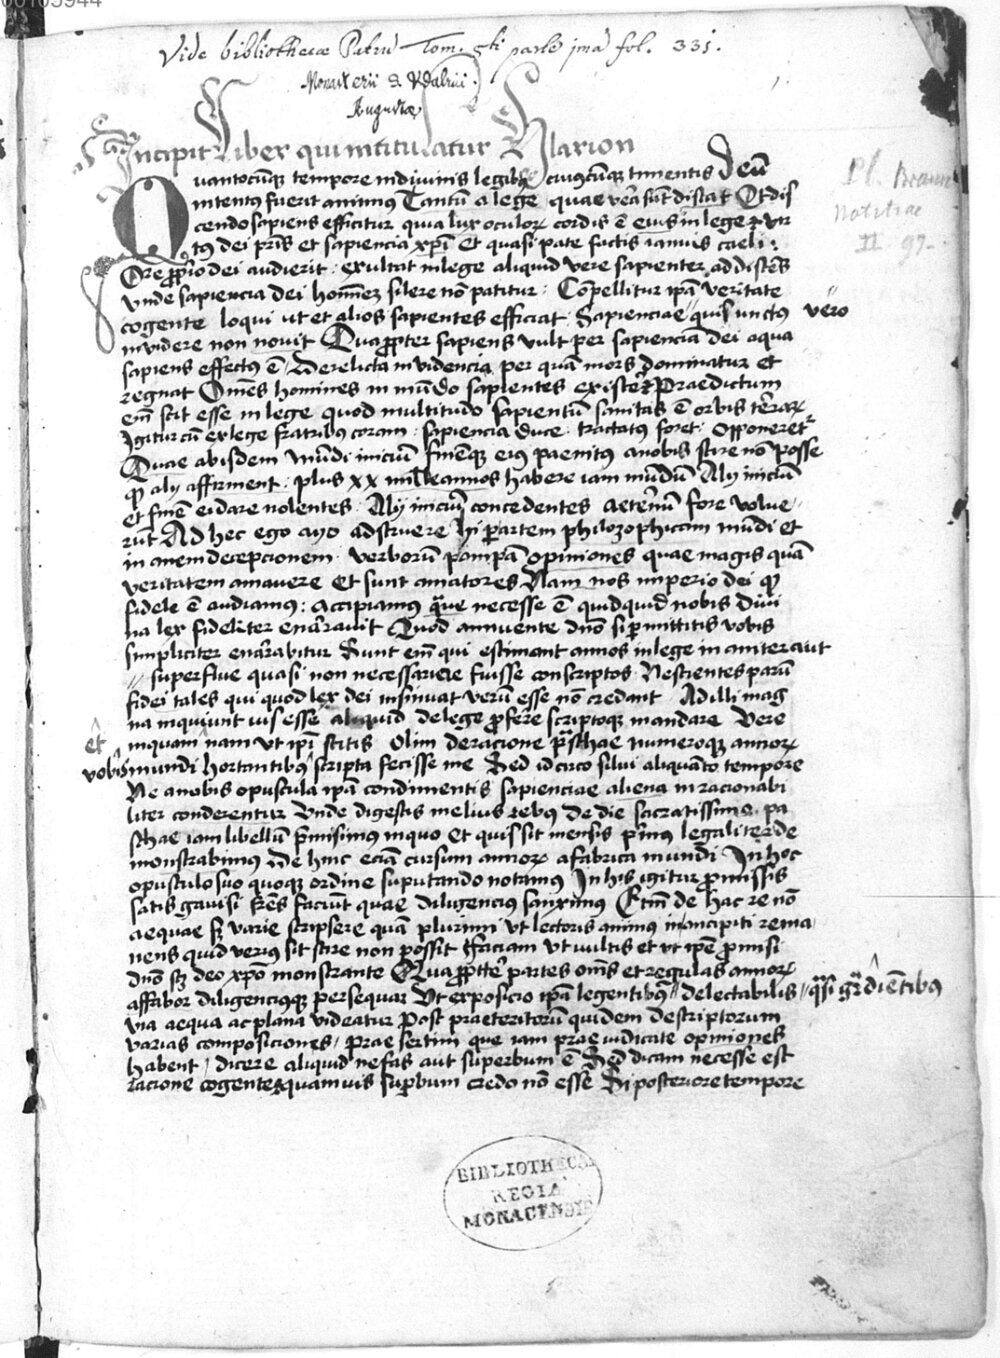 00105944
Vide bibliothecæ Patrũ Tom. 6ti parte jma fol. 331.
Monasterii S. Vdalrici
Augustæ
Incipit Liber qui intitulatur Hilarion
Quantocũq tempore in diuinis legibꝫ cuiuscũq timentis Deũ
intentus fuerit animus Tantũ a lege quae vera sũt distat Et dis
cendo sapiens efficitur quia lux oculoꝝ cordis ē eius in lege vir
tus dei pr̃is et sapiencia xp̃i Et quasi pate factis ianuis caeli :
Ore p̱prio dei audierit : exultat in lege aliquid vere sapienter addiscẽs
Vnde sapiencia dei homeʒ silere nõ patitur : Cõpellitur ip̃a veritate
cogente loqui ut et alios sapientes efficiat Sapienciae " quis unctus " vero
inuidere non nouit Quap̱pter sapiens vult per sapiencia dei aqua
sapiens effectus ē Derelicta inuidencia per quã mors dominatur et
regnat Om̃es homines in mũdo sapientes existere Praedictum
em̃ scit esse in lege quod multitudo sapientũ sanitas ē orbis terraꝝ
Igitur cũ ex lege fratribus coram : sapiencia duce : tractatus foret : Opponeret
Quae abisdem mũdi iniciũ finẽq eius paenitus anobis scire nõ posse
ꝙ alij affirment : plus xx milleannos habere iam mũdũ Alij iniciũ
et finẽ ei dare nolentes : Alij iniciũ concedentes aeternũ fore volue
rũt Ad hec ego ayo adstruere hij partem philozophicam mũdi et
inanem decepcionem verborũ pampã opiniones quae magis quã
veritatem amauere et sunt amatores Nam nos imperio dei ꝙ
fidele ē audiamus : accipiamus q̃ue necesse ē quidquid nobis diui
na lex fideliter enarrauit Quod annuente dño si p̱mittitis vobis
simpliciter enarrabitur Sunt em̃ qui estimant annos in lege inaniter aut
" superflue quasi non necessariele fuisse conscriptos Nescientes parũ
fidei tales qui quod lex dei insinuat verũ esse nõ credant Ad illi mag
na inquiunt uis esse aliquid de lege p̱ferre scriptoq mandare Vere
et
inquam nam ut ip̃i scitis Olim deracione paschae numeroq annoꝝ
vobis mundi hortantibus scripta fecisse me Sed idcirco silui aliquãto tempore
Ne anobis opuscula ip̃a condimentis sapienciae aliena inracionabi
liter conderentur Vnde digestis melius rebus De die sacratissime pa
schae iam libellũ p̱misimus inquo et quis sit mensis p̱mus legaliter de
monstrabimus De hinc eciã cursum annoꝝ a fabrica mundi In hoc
opusculo suo quoq ordine suputando notamus In his igitur p̱missis
satis gauisi fr̃es faciũt quae diligencius sanximus Etm̃ de hac re nõ
aequae sꝫ varie scripsere quã plurimi Vt lectoris animus in ancipiti rema
nens quid verius sit scire non possit Faciam ut vultis et ut ip̃e p̱misi
dño sꝫ deo xp̃o monstrante Quap̱pter partes om̃is et regulas annoꝝ
affabor diligenciusq persequar Vt exposicio ip̃a legentibus " delectabilis " q̃si gradiẽtibus
via aequa ac plana videatur Post praeteritorũ quidem descriptorum
varias composiciones, prae sertim que iam prae iudicate opiniones
habent, dicere aliquid nefas aut superbum ē Sed dicam necesse est
racione cogente quamuis sup̱bum credo nõ esse Si posteriore tempore
Pl. Braun
Notitiae
II 97.
BIBLIOTHECA
REGIA
MONACENSIS